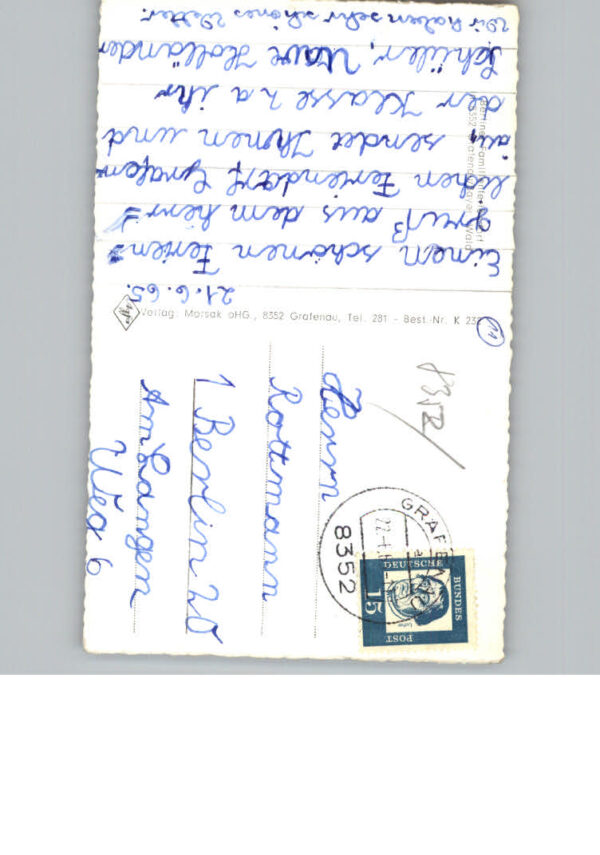 21.6.65.
Einen schönen Ferien=
gruß aus dem herr=
lichen Feriendorf Grafen
au sendet Ihnen und
der Klasse 2a ihr
Schüler, Uwe Holländer
Wir haben sehr schönes Wetter.
Verlag: Morsak oHG., 8352 Grafenau, Tel. 281 - Best.-Nr. K 232
11
8352
Herrn
Rottmann
1 Berlin 20
Am Langen
Weg 6
GRAFENAU
8352
DEUTSCHE
BUNDES
POST
15
Luther